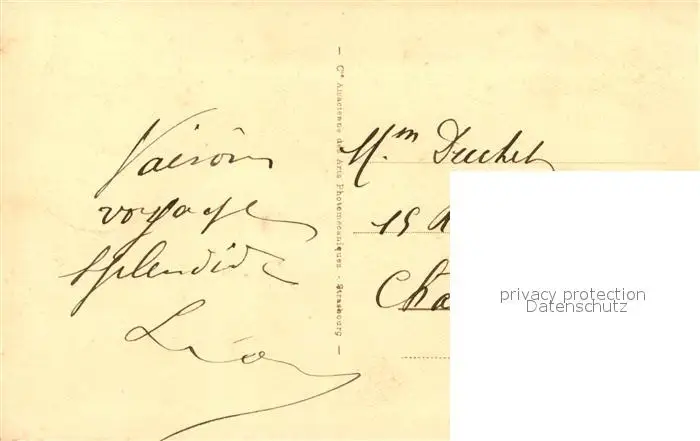 Faisons
voyage
splendide
Léon
— Cie Alsacienne des Arts Photomécaniques - Strasbourg —
Mm Duchet
15 R
Cha
privacy protection
Datenschutz